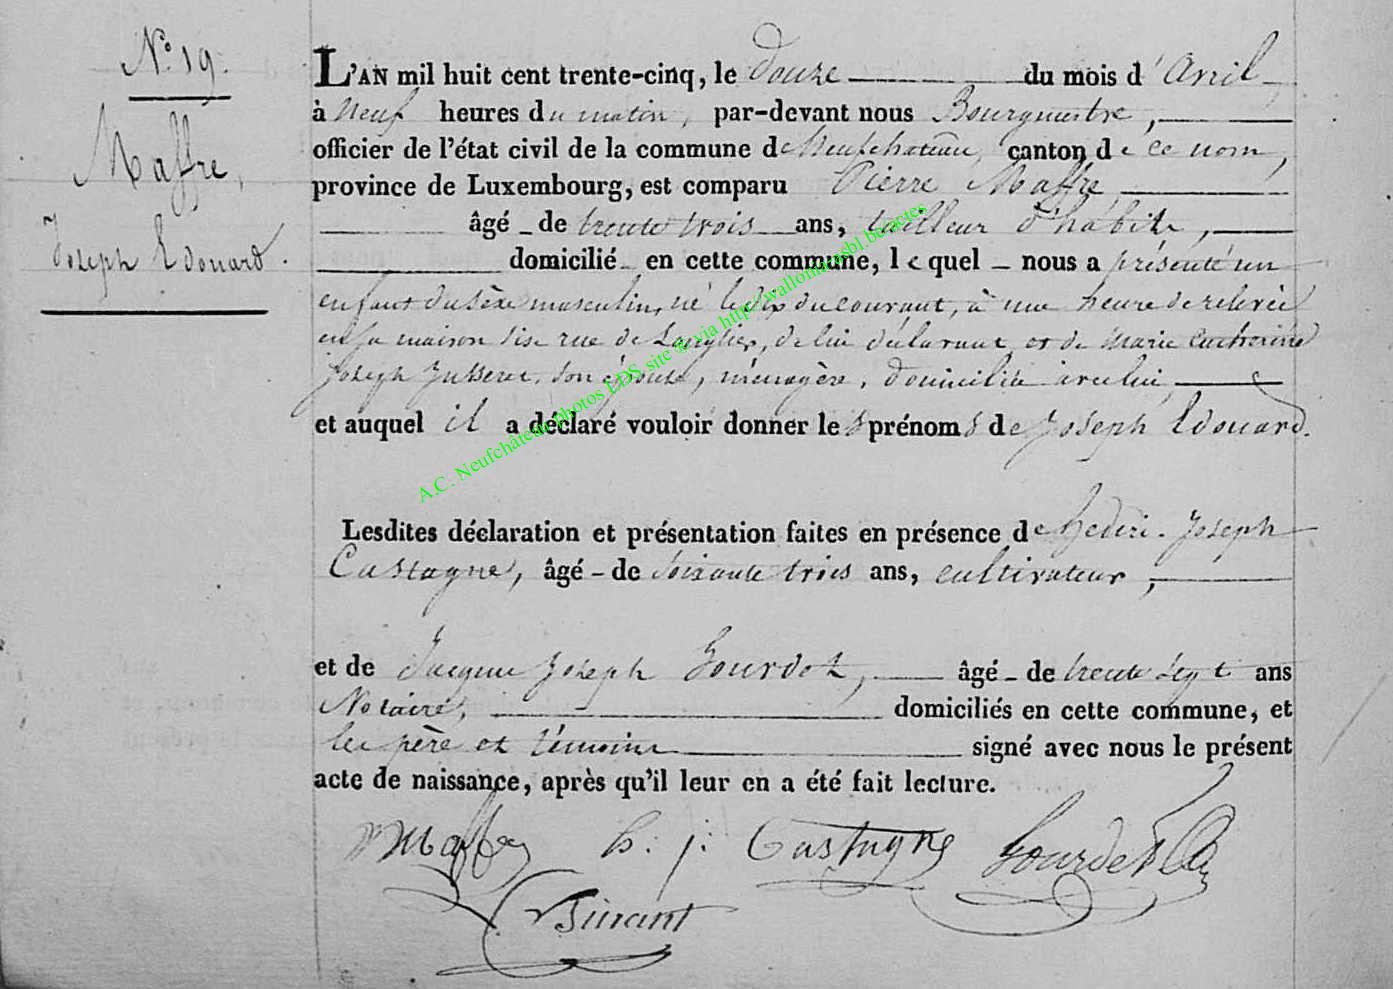 N.° 19.
Maffre,
Joseph Edouard.
L'AN mil huit cent trente-cinq, le Douze du mois d'Avril
à Neuf heures du matin, par-devant nous Bourgmestre,
officier de l'état civil de la commune de Neufchateau, canton de ce nom,
province de Luxembourg, est comparu Pierre Maffre
âgé de trente trois ans, tailleur d'habits,
domicilié en cette commune, lequel nous a présenté un
enfant du sèxe masculin, né le dix du courant, à une heure de relevée
en sa maison sise rue de Longlier, de lui déclarant et de Marie Catherine
Joseph Jusseret, son épouse, ménagère, domiciliée avec lui
et auquel il a déclaré vouloir donner les prénoms de Joseph Edouard.
Lesdites déclaration et présentation faites en présence de Joseph
Castagne, âgé de soixante trois ans, cultivateur,
et de Jacques Joseph Gourdet, âgé de trente sept ans
Notaire, domiciliés en cette commune, et
les père et témoins signé avec nous le présent
acte de naissance, après qu'il leur en a été fait lecture.
Maffre h: j: Castagne Gourdet
A.C. Neufchâteau photos LDS site & via http://wallonia.asbl.be/actes